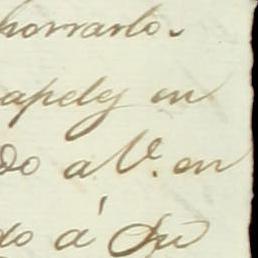 horrarlo.
apeles en
do a V. en
do á Su